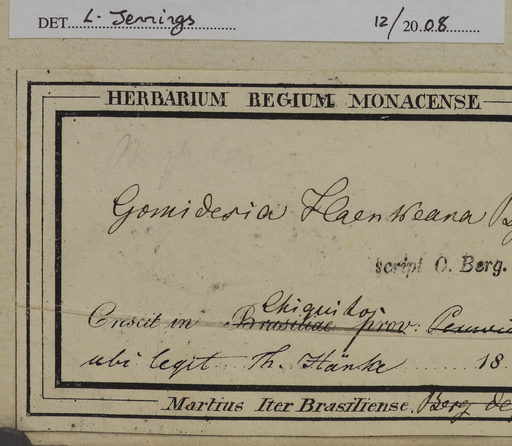 DET. L. Jennings 12/2008
HERBARIUM REGIUM MONACENSE
Gomidesia Haenkeana
script O. Berg.
Chiquitos
Crescit in Brasiliae prov:
ubi legit Th. Hänke 18
Martius Iter Brasiliense. Berg